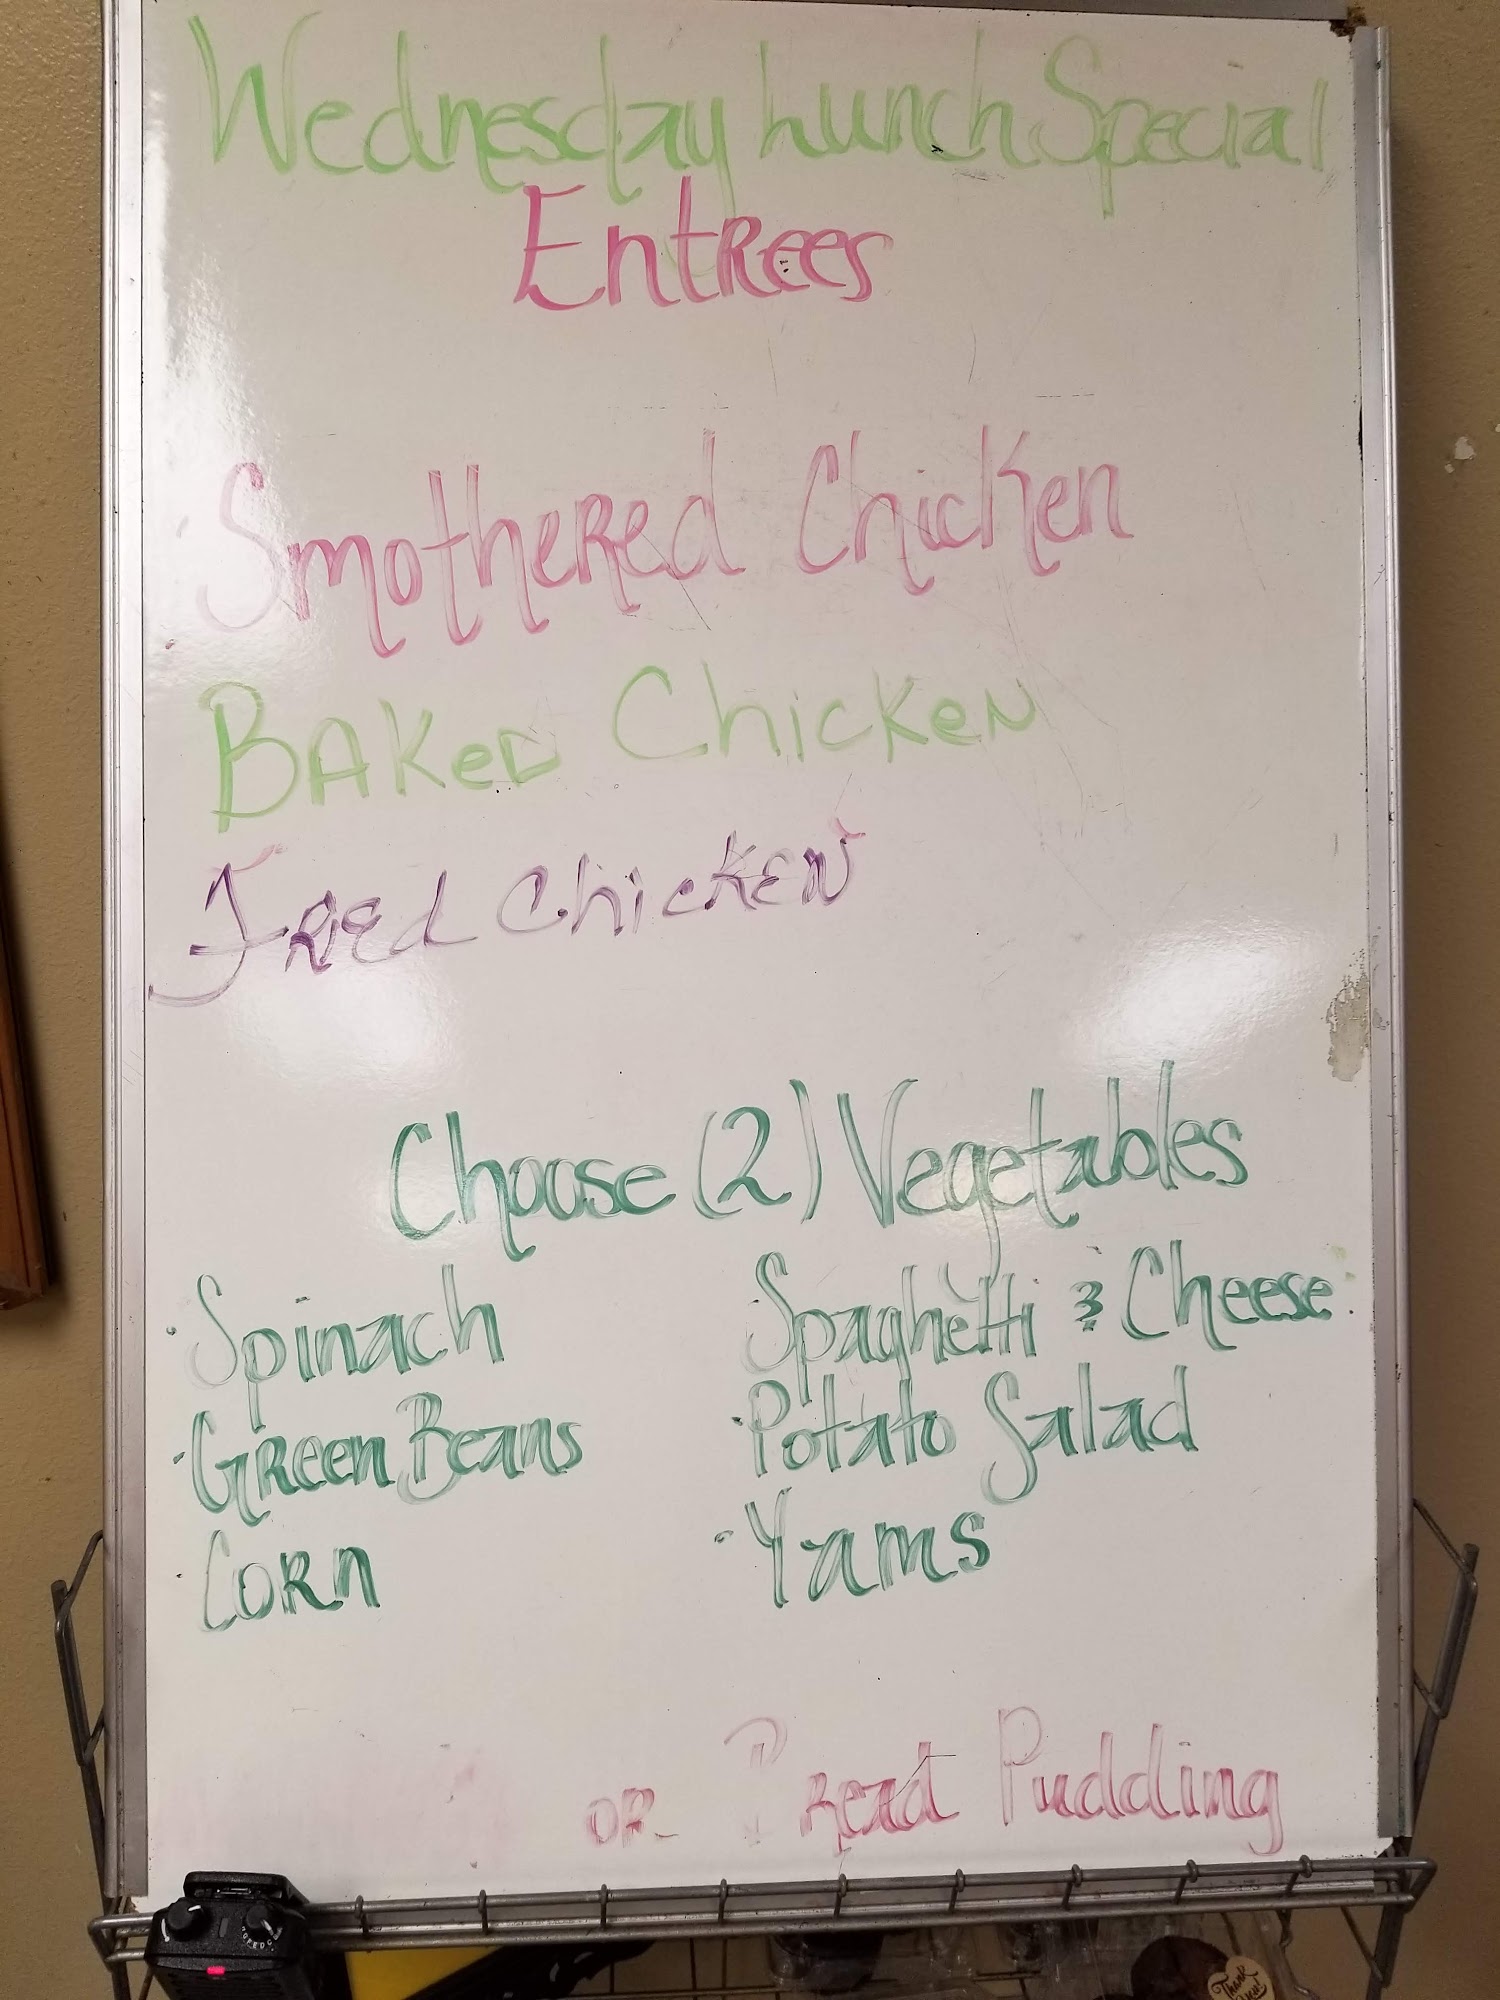 Wednesday Lunch Special
Entrees
Smothered Chicken
Baked Chicken
Fried Chicken
Choose (2) Vegetables
· Spinach
· Green Beans
· Corn
· Spaghetti & Cheese
· Potato Salad
· Yams
or Bread Pudding
Thank
You!